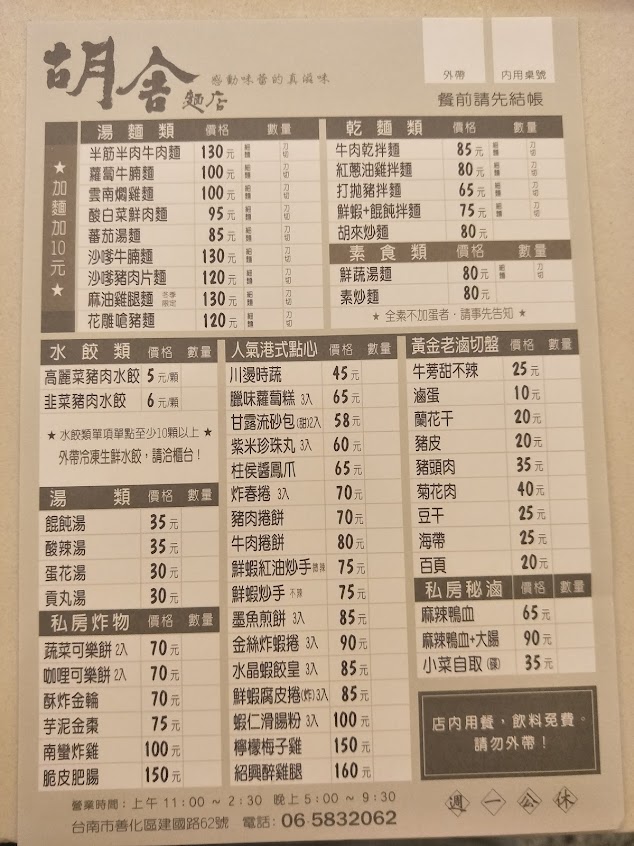 胡舍
麵店
感動味蕾的真滋味
外帶
內用桌號
餐前請先結帳
★加麵加10元★
湯麵類 價格 數量
半筋半肉牛肉麵 130元 細麵 刀切
蘿蔔牛腩麵 100元 細麵 刀切
雲南燜雞麵 100元 細麵 刀切
酸白菜鮮肉麵 95元 細麵 刀切
蕃茄湯麵 85元 細麵 刀切
沙嗲牛腩麵 130元 細麵 刀切
沙嗲豬肉片麵 120元 細麵 刀切
麻油雞腿麵 冬季限定 130元 細麵 刀切
花雕嗆豬麵 120元 細麵 刀切
乾麵類 價格 數量
牛肉乾拌麵 85元 細麵 刀切
紅蔥油雞拌麵 80元 細麵 刀切
打拋豬拌麵 65元 細麵 刀切
鮮蝦+餛飩拌麵 75元 細麵 刀切
胡來炒麵 80元
素食類 價格 數量
鮮蔬湯麵 80元 細麵 刀切
素炒麵 80元
★ 全素不加蛋者，請事先告知 ★
水餃類 價格 數量
高麗菜豬肉水餃 5元/顆
韭菜豬肉水餃 6元/顆
★ 水餃類單項單點至少10顆以上 ★
外帶冷凍生鮮水餃，請洽櫃台！
湯類 價格 數量
餛飩湯 35元
酸辣湯 35元
蛋花湯 30元
貢丸湯 30元
私房炸物 價格 數量
蔬菜可樂餅 2入 70元
咖哩可樂餅 2入 70元
酥炸金輪 70元
芋泥金棗 75元
南蠻炸雞 100元
脆皮肥腸 150元
人氣港式點心 價格 數量
川燙時蔬 45元
臘味蘿蔔糕 3入 65元
甘露流砂包(甜)2入 58元
紫米珍珠丸 3入 60元
柱侯醬鳳爪 65元
炸春捲 3入 70元
豬肉捲餅 70元
牛肉捲餅 80元
鮮蝦紅油炒手 微辣 75元
鮮蝦炒手 不辣 75元
墨魚煎餅 3入 85元
金絲炸蝦捲 3入 90元
水晶蝦餃皇 3入 85元
鮮蝦腐皮捲(炸)3入 85元
蝦仁滑腸粉 3入 100元
檸檬梅子雞 150元
紹興醉雞腿 160元
黃金老滷切盤 價格 數量
牛蒡甜不辣 25元
滷蛋 10元
蘭花干 20元
豬皮 20元
豬頭肉 35元
菊花肉 40元
豆干 25元
海帶 25元
百頁 20元
私房秘滷 價格 數量
麻辣鴨血 65元
麻辣鴨血+大腸 90元
小菜自取(碟) 35元
店內用餐，飲料免費。
請勿外帶！
營業時間：上午 11:00 ~ 2:30 晚上 5:00 ~ 9:30
台南市善化區建國路62號 電話：06-5832062
週一公休